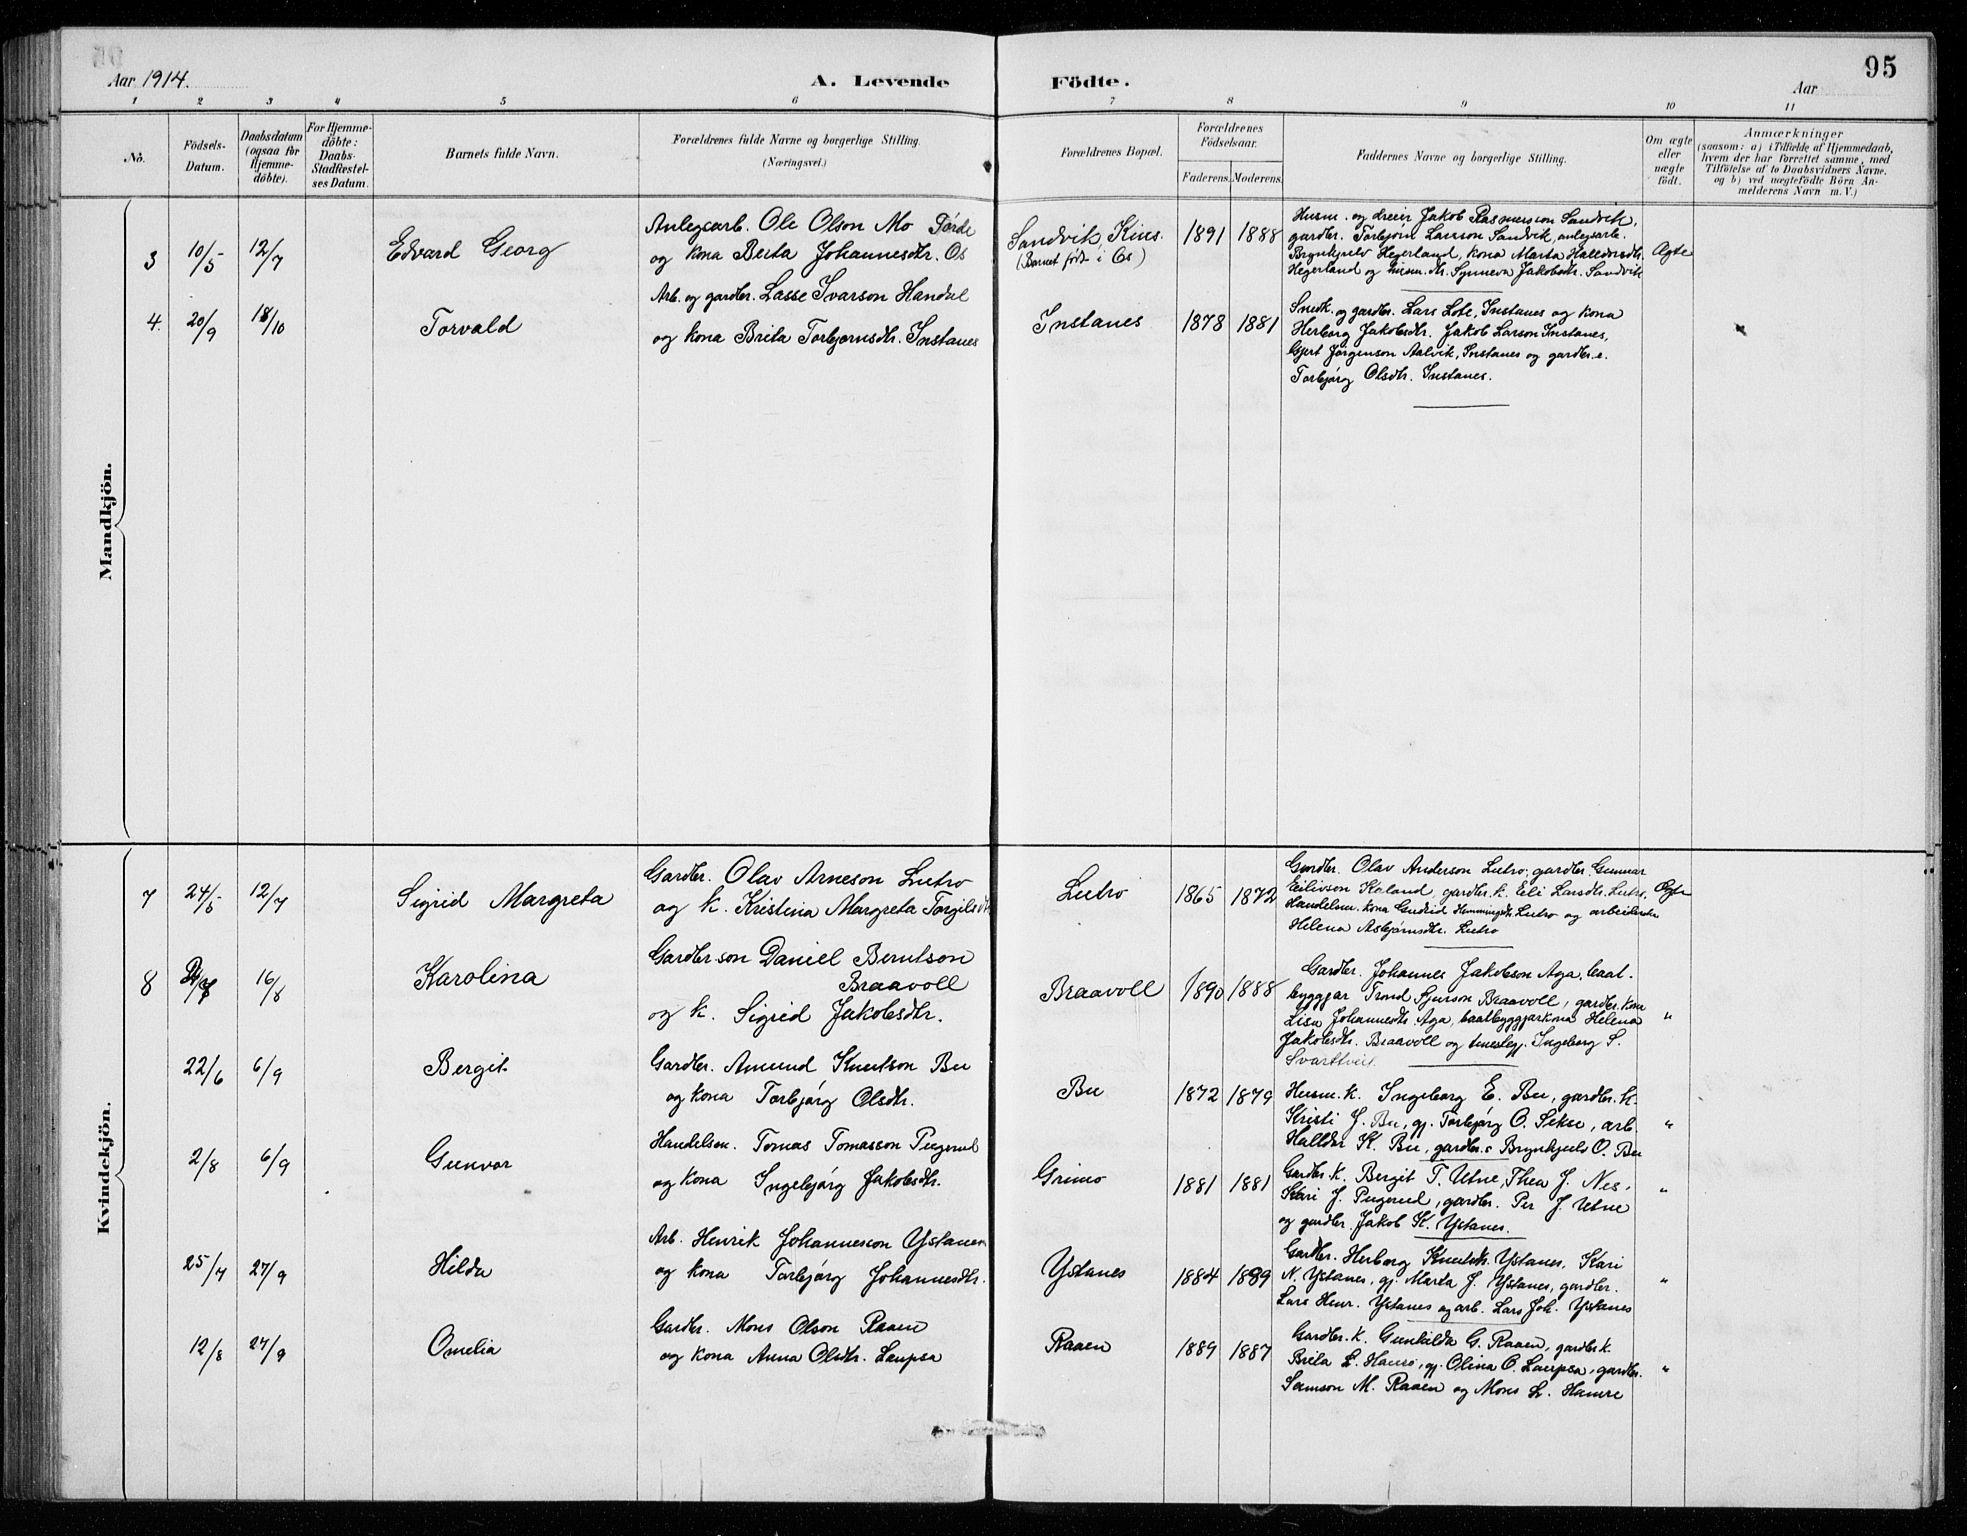 95
Aar 1914.
A. Levende Födte.
Aar
1 2 3 4 5 6 7 8 9 10 11
No.
Födsels-Datum.
Daabsdatum (ogsaa for Hjemme-döbte).
For Hjemme-döbte: Daabs-Stadfæstel-ses Datum.
Barnets fulde Navn.
Forældrenes fulde Navne og borgerlige Stilling.
(Næringsvei.)
Forældrenes Bopæl.
Forældrenes Födselsaar.
Faderens. Moderens.
Faddernes Navne og borgerlige Stilling.
Om ægte eller uægte födt.
Anmærkninger
(saasom: a) i Tilfælde af Hjemmedaab,
hvem der har forrettet samme, med
Tilföielse af to Daabsvidners Navne.
og b) ved uægtefödte Börn An-
melderens Navn m. V.)
Mandkjön.
3 10/5 12/7 Edvard Georg
Anlegsarb. Ole Olson Mo Förde
og kona Berta Johannesdtr. Os
Sandvik, Kins.
(Barnet født i Os)
1891 1888
Husm. og dreier Jakob Rasmusson Sandvik,
gardbr. Torbjörn Larsson Sandvik, anlegsarb.
Brynkjelv Hegerland, kona Marta Halldorsdtr.
Hegerland og husm. dtr. Synneva Jakobsdtr. Sandvik
Ægte
4. 20/9 18/10 Torvald
Arb. og gardbr. Lasse Ivarson Handal
og kona Brita Torbjørnsdtr. Instanes
Instanes
1878 1881
Snedk. og gardbr. Lars Lote, Instanes og kona
Herborg Jakobsdtr. Jakob Larson Instanes,
Gjert Jörgenson Aalvik, Instanes og gardbr. e.
Torbjörg Olsdtr. Instanes.
Kvindekjön.
7 24/5 12/7 Sigrid Margreta
Gardbr. Olav Arneson Lutro
og k. Kristina Margreta Torgilsdtr
Lutro
1865 1872
Gardbr. Olav Anderson Lutro, gardbr. Gunnar
Eilivson, gardbr. k. Eli Larsdtr. Lutro,
Handelsm. kona Gudrid Hemmingsdtr. Lutro og
Helena Asbjørnsdtr. Lutro
Ægte
8 16/8 Karolina
Gardbr. son Daniel Berntson
Braavoll
og k. Sigrid Jakobsdtr.
Braavoll
1890 1888
Gardbr. Johannes Jakobson Aga, baat-
byggjar Trond Sjurson Braavoll, gardbr. kona
Lisa Johannesdtr. Aga, baatbyggjarkona Helena
Jakobsdtr. Braavoll og Ingeborg S.
Svartveit.
"
22/6 6/9 Bergit
Gardbr. Amund Knutson Bu
og kona Torbjörg Olsdtr.
Bu
1872 1879
Husm. k. Ingeborg E. Bu, gardbr. k.
Kristi J. Bu, gj. Torbjörg O. Sekse, arb.
Halldor K. Bu, gardbr. s. Brynkjuls O. Bu
"
2/8 6/9 Gunvor
Handelsm. Tomas Tomasson Pugerud
og kona Ingebjörg Jakobsdtr.
Grimo
1881 1881
Gardbr. k. Bergit T. Utne, Thea J. Nes,
Kari J. Pugerud, gardbr. Per J. Utne
og gardbr. Jakob K. Ystanes.
"
25/7 27/9 Hilda
Arb. Henrik Johannesson Ystanes
og kona Torbjörg Johannesdtr.
Ystanes
1884 1889
Gardbr. Herborg Knutsdtr. Ystanes, Kari
N. Ystanes, gj. Marta J. Ystanes, gardbr.
Lars Henr. Ystanes og arb. Lars Joh. Ystanes
"
12/8 27/9 Omelia
Gardbr. Mons Olson Raaen
og kona Anna Olsdtr. Laupsa
Raaen
1889 1887
Gardbr. k. Gunhilda G. Raaen, gardbr. k.
Brita L. Hamre, gj. Olina O. Laupsa, gardbr.
Samson M. Raaen og Mons L. Hamre
"